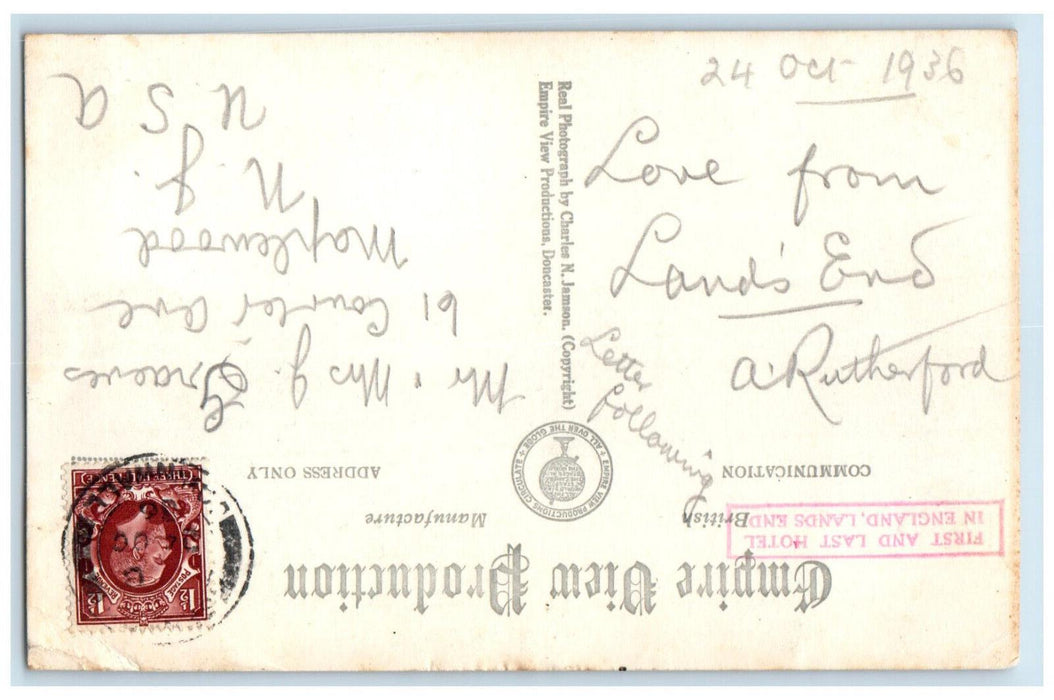 24 Oct 1936
Love from
Land's End
A. Rutherford
Letter
following
Empire View Production
British Manufacture
COMMUNICATION
ADDRESS ONLY
FIRST AND LAST HOTEL
IN ENGLAND, LANDS END
Real Photograph by Charles N. Jamson. (Copyright)
Empire View Productions, Doncaster.
EMPIRE VIEW PRODUCTIONS CIRCULATE + ALL OVER THE GLOBE +
Mr & Mrs J. Graeves
61 Courter Ave
Maplewood
N. J.
U S A
POSTAGE
REVENUE
1½